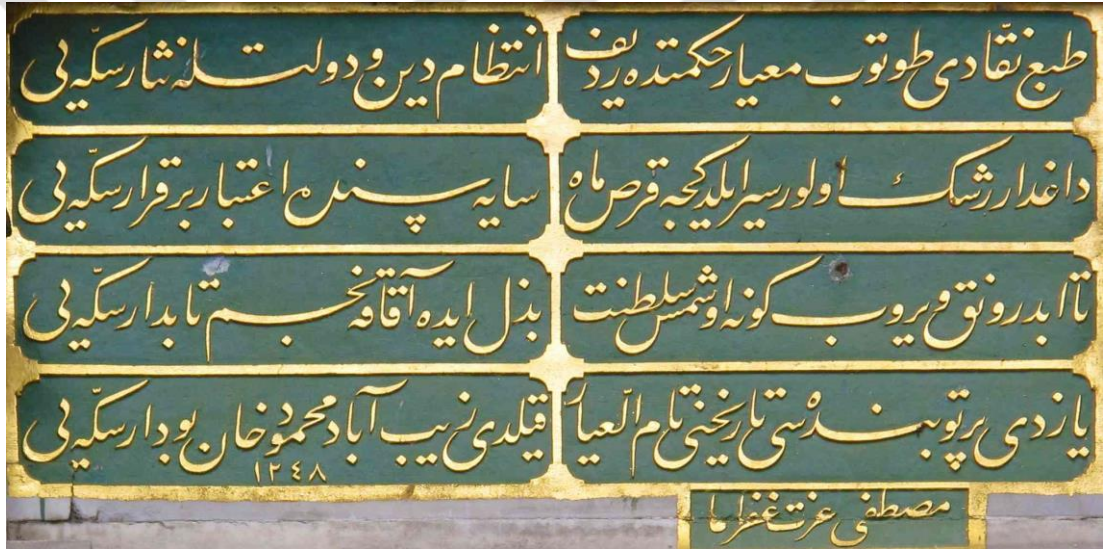 طبع نقّادی طوتوب معیار حكمتده ردیف
انتظام دین و دولتله نثار سكّه یی
داغدار رشك اولور سیر ایلدكجه قرص ماه
سایه سنده اعتبار برقرار سكّه یی
تا ابد رونق ویروب كونه او شمس سلطنت
بذل ایده آفاقه نجم تابدار سكّه یی
یازدی پرتو بنده سی تاریخنی تام العیار
قیلدی زیب آباد محمود خان بو دار سكّه یی
١٢٤٨
مصطفی عزت غفرلهما